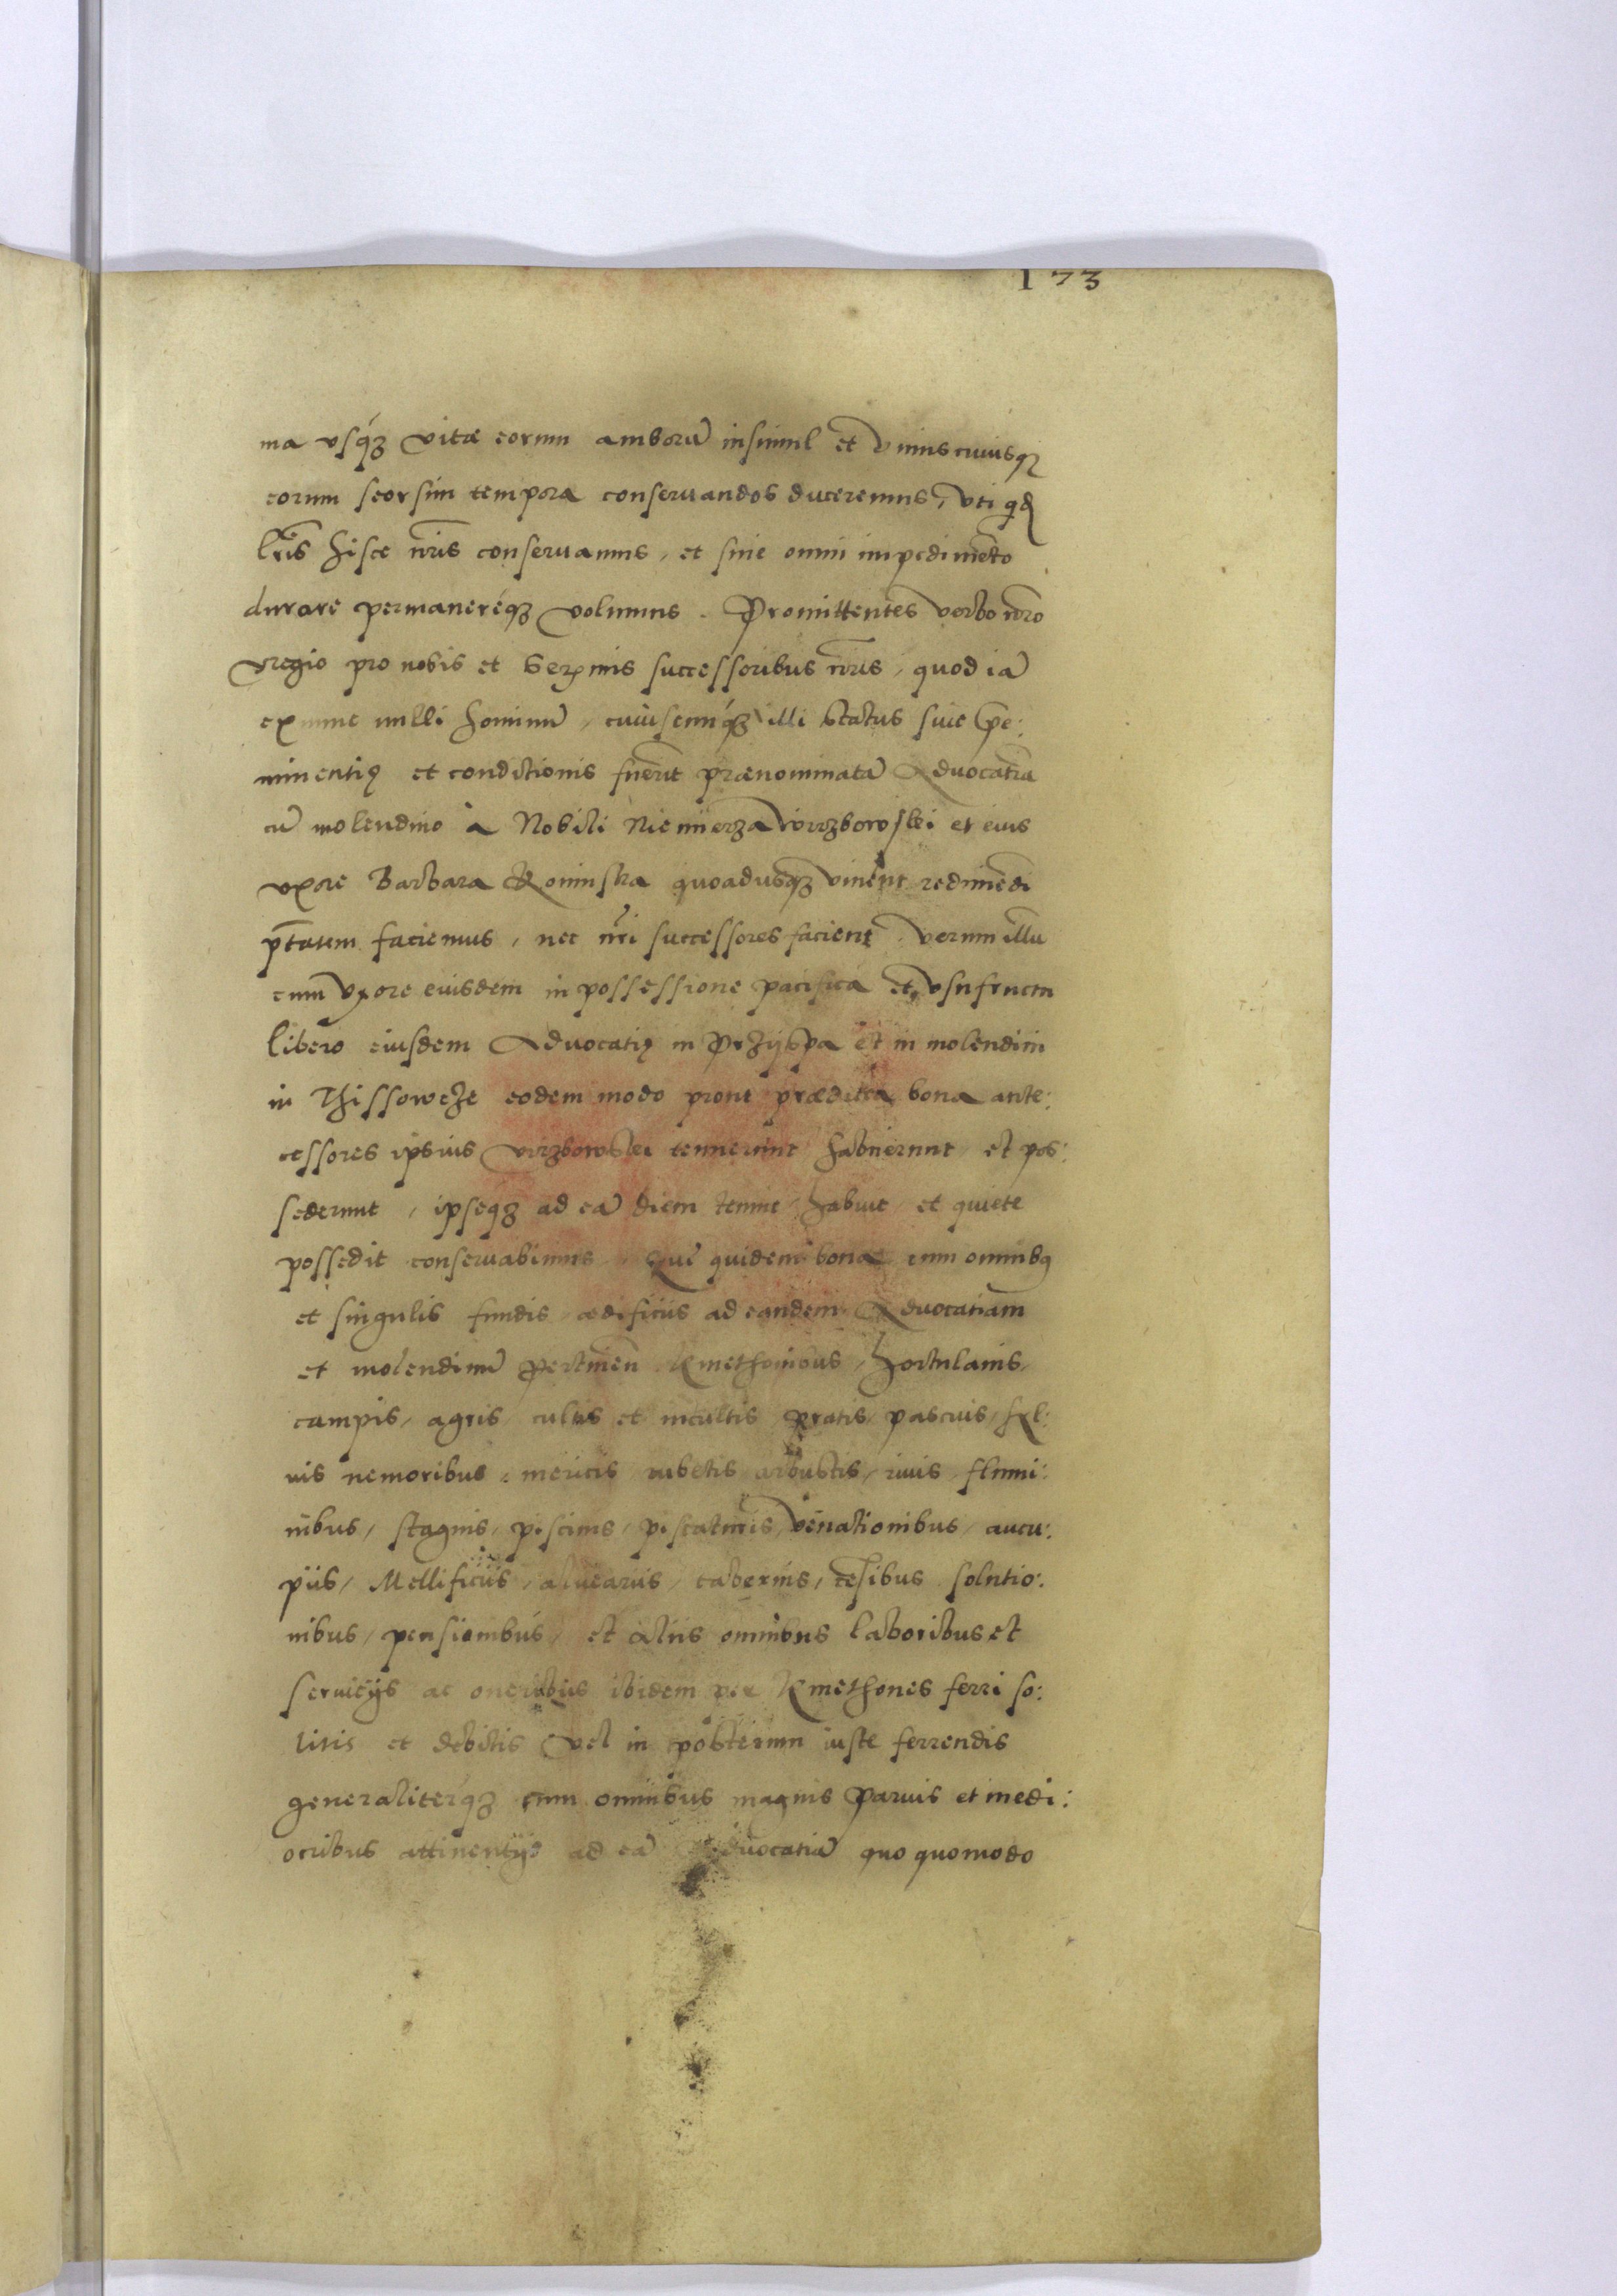 173
ma usq́ꝫ vitæ eorum amborū insimul et uniuscuiusqꝫ
eorum seorsim tempora conseruandos duceremus, uti qd
lr̄is hisce nr̄is conseruamus, et sine omni impedimēto
durare permaneréqꝫ volumus. Promittentes verbo nr̄o
regio pro nobis et Serꝫmis successoribus nr̄is, quod iā
ex nunc nulli hominū, cuiuscunq́ꝫ illi status siue præ:
minentię et conditionis fuerit prænominatā Aduocatiā
cū molendino à Nobili Niemierza Wirzbowskei et eius
uxore Barbara Koninska quoadusqꝫ vixerint redimēdi
ptātem faciemus, nec nr̄i successores facient. verum illū
cum uxore eiusdem in possessione pacifica et usufructu
libero eiusdem Aduocatię in Przijspa et in molendini
in Thissowcze eodem modo prout prædicta bona ante:
cessores ipsius Virzbowskei tenuerunt habuerunt et pos:
sederunt, ipseqꝫ ad eā diem tenuit habuit et quiete
possedit conseruabimus. Que quidem bona cum omnibꝯ
et singulis fundis ædificiis ad eandem Aduocatiam
et molendinū pertinen̄ Kmethonibus, hortulanis,
campis, agris cultis et incultis pratis, pascuis, syl:
uis nemoribus, mericis rubetis arbustis, riuis, flumi:
nibus, stagnis, piscinis, piscaturis, venationibus, aucu:
piis, Mellificiis, aluearis, tabernis, cēsibus solutio:
nibus, pensionibus, et aliis omnibus laboribus et
seruicijs ac oneribus ibidem per Kmethones ferri so:
litis et debitis vel in posterum iuste ferrendis
generaliterq́ꝫ cum omnibus magnis paruis et medi:
ocribus attinentijs ad eā Aduocatiā quo quomodo